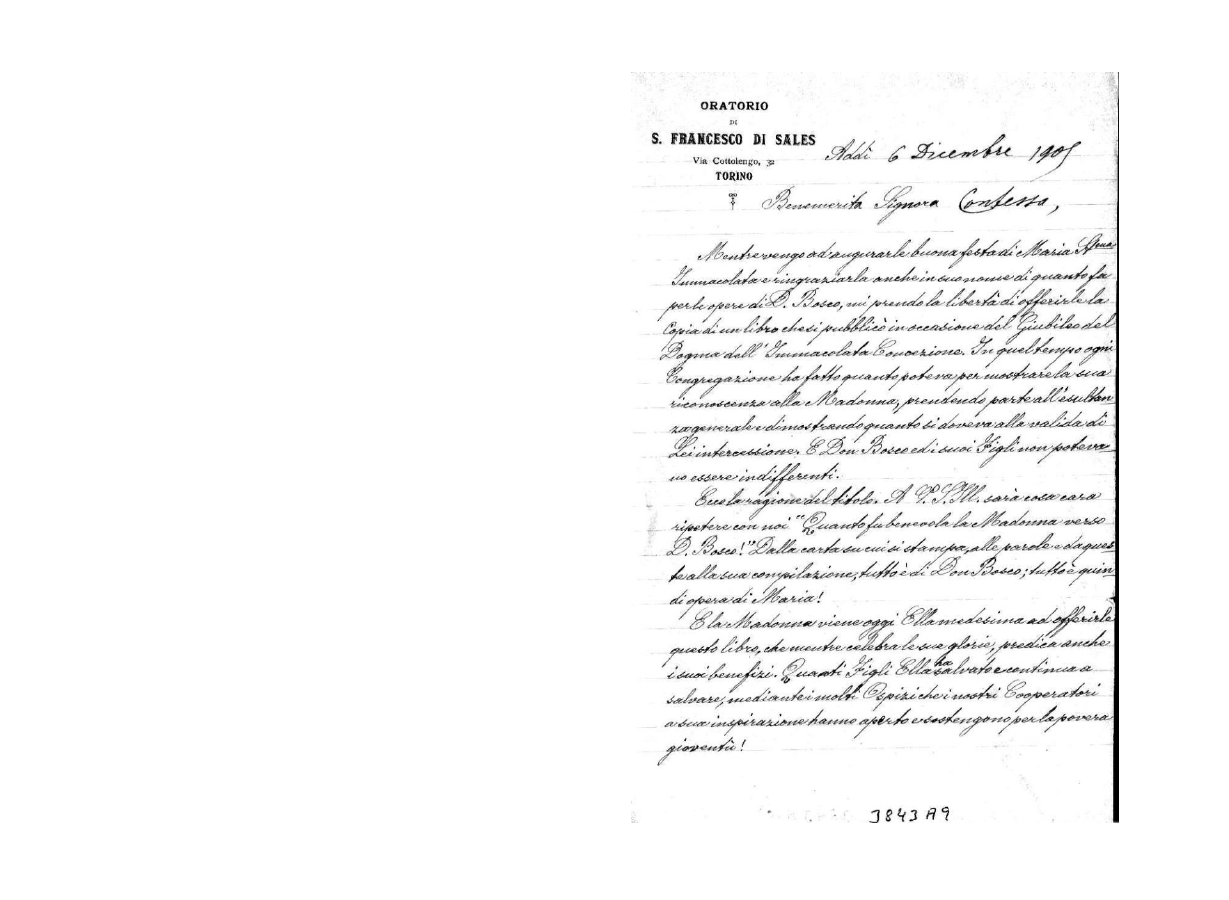 ORATORIO
DI
S. FRANCESCO DI SALES
Via Cottolengo, 32
TORINO
Addì 6 Dicembre 1905
Benemerita Signora Contessa,
Mentre vengo ad augurarle buona festa di Maria SSma
Immacolata e ringraziarla anche in suo nome di quanto fa
per le opere di D. Bosco, mi prendo la libertà di offerirle la
Copia di un libro che si pubblicò in occasione del Giubileo del
Dogma dell' Immacolata Concezione. In quel tempo ogni
Congregazione ha fatto quanto poteva per mostrare la sua
riconoscenza alla Madonna, prendendo parte all'esultan
za generale e dimostrando quanto si doveva alla valida di
Lei intercessione. E Don Bosco ed i suoi Figli non poteva_
no essere indifferenti.
Ecco la ragione del titolo. A V. S. Ill. sarà cosa cara
ripetere con noi "Quanto fu benevola la Madonna verso
D. Bosco!" Dalla carta su cui si stampa, alle parole e da ques_
te alla sua compilazione, tutto è di Don Bosco; tutto è quin_
di opera di Maria!
E la Madonna viene oggi Ella medesima ad offerirle
questo libro, che mentre celebra le sue glorie, predica anche
i suoi benefizi. Quanti Figli Ella ha salvato e continua a
salvare, mediante i molti Ospizi che i nostri Cooperatori
a sua inspirazione hanno aperto e sostengono per la povera
gioventù!
3843 A9